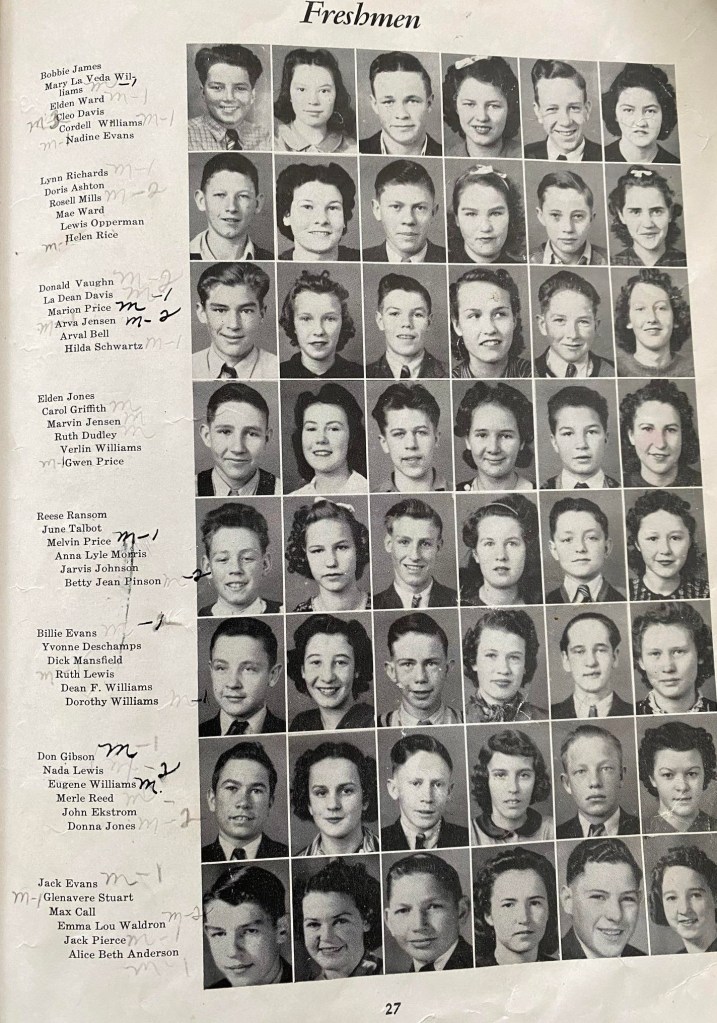 Freshmen
Bobbie James
Mary La Veda Wil-
liams
Elden Ward
Cleo Davis
Cordell Williams
Nadine Evans
Lynn Richards
Doris Ashton
Rosell Mills
Mae Ward
Lewis Opperman
Helen Rice
Donald Vaughn
La Dean Davis
Marion Price m-1
Arva Jensen m-2
Arval Bell
Hilda Schwartz
Elden Jones
Carol Griffith
Marvin Jensen
Ruth Dudley
Verlin Williams
Gwen Price
Reese Ransom
June Talbot
Melvin Price m-1
Anna Lyle Morris
Jarvis Johnson
Betty Jean Pinson -2
Billie Evans -1
Yvonne Deschamps
Dick Mansfield
Ruth Lewis
Dean F. Williams
Dorothy Williams -1
Don Gibson m
Nada Lewis
Eugene Williams m.2
Merle Reed
John Ekstrom
Donna Jones
Jack Evans m-1
m-1 Glenavere Stuart
Max Call
Emma Lou Waldron
Jack Pierce
Alice Beth Anderson
27